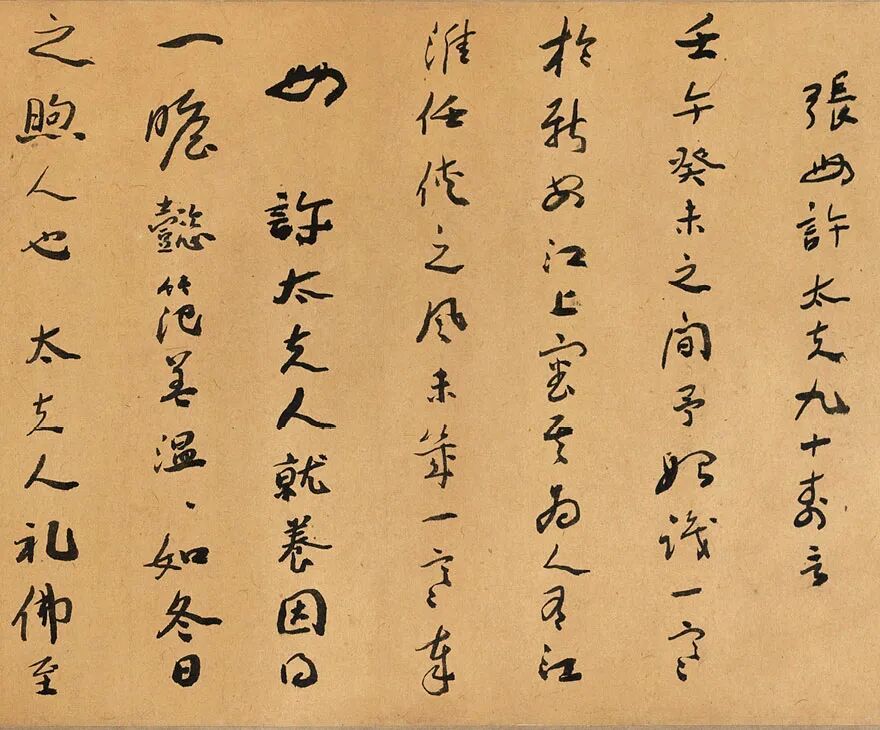 張母許太夫九十壽言
壬午癸未之間予始識一
於新安江上其為人有江
淮任俠之風未幾一奉
母 許太夫人就養因得
一瞻懿範蓋溫〻如冬日
之煦人也 太夫人礼佛至